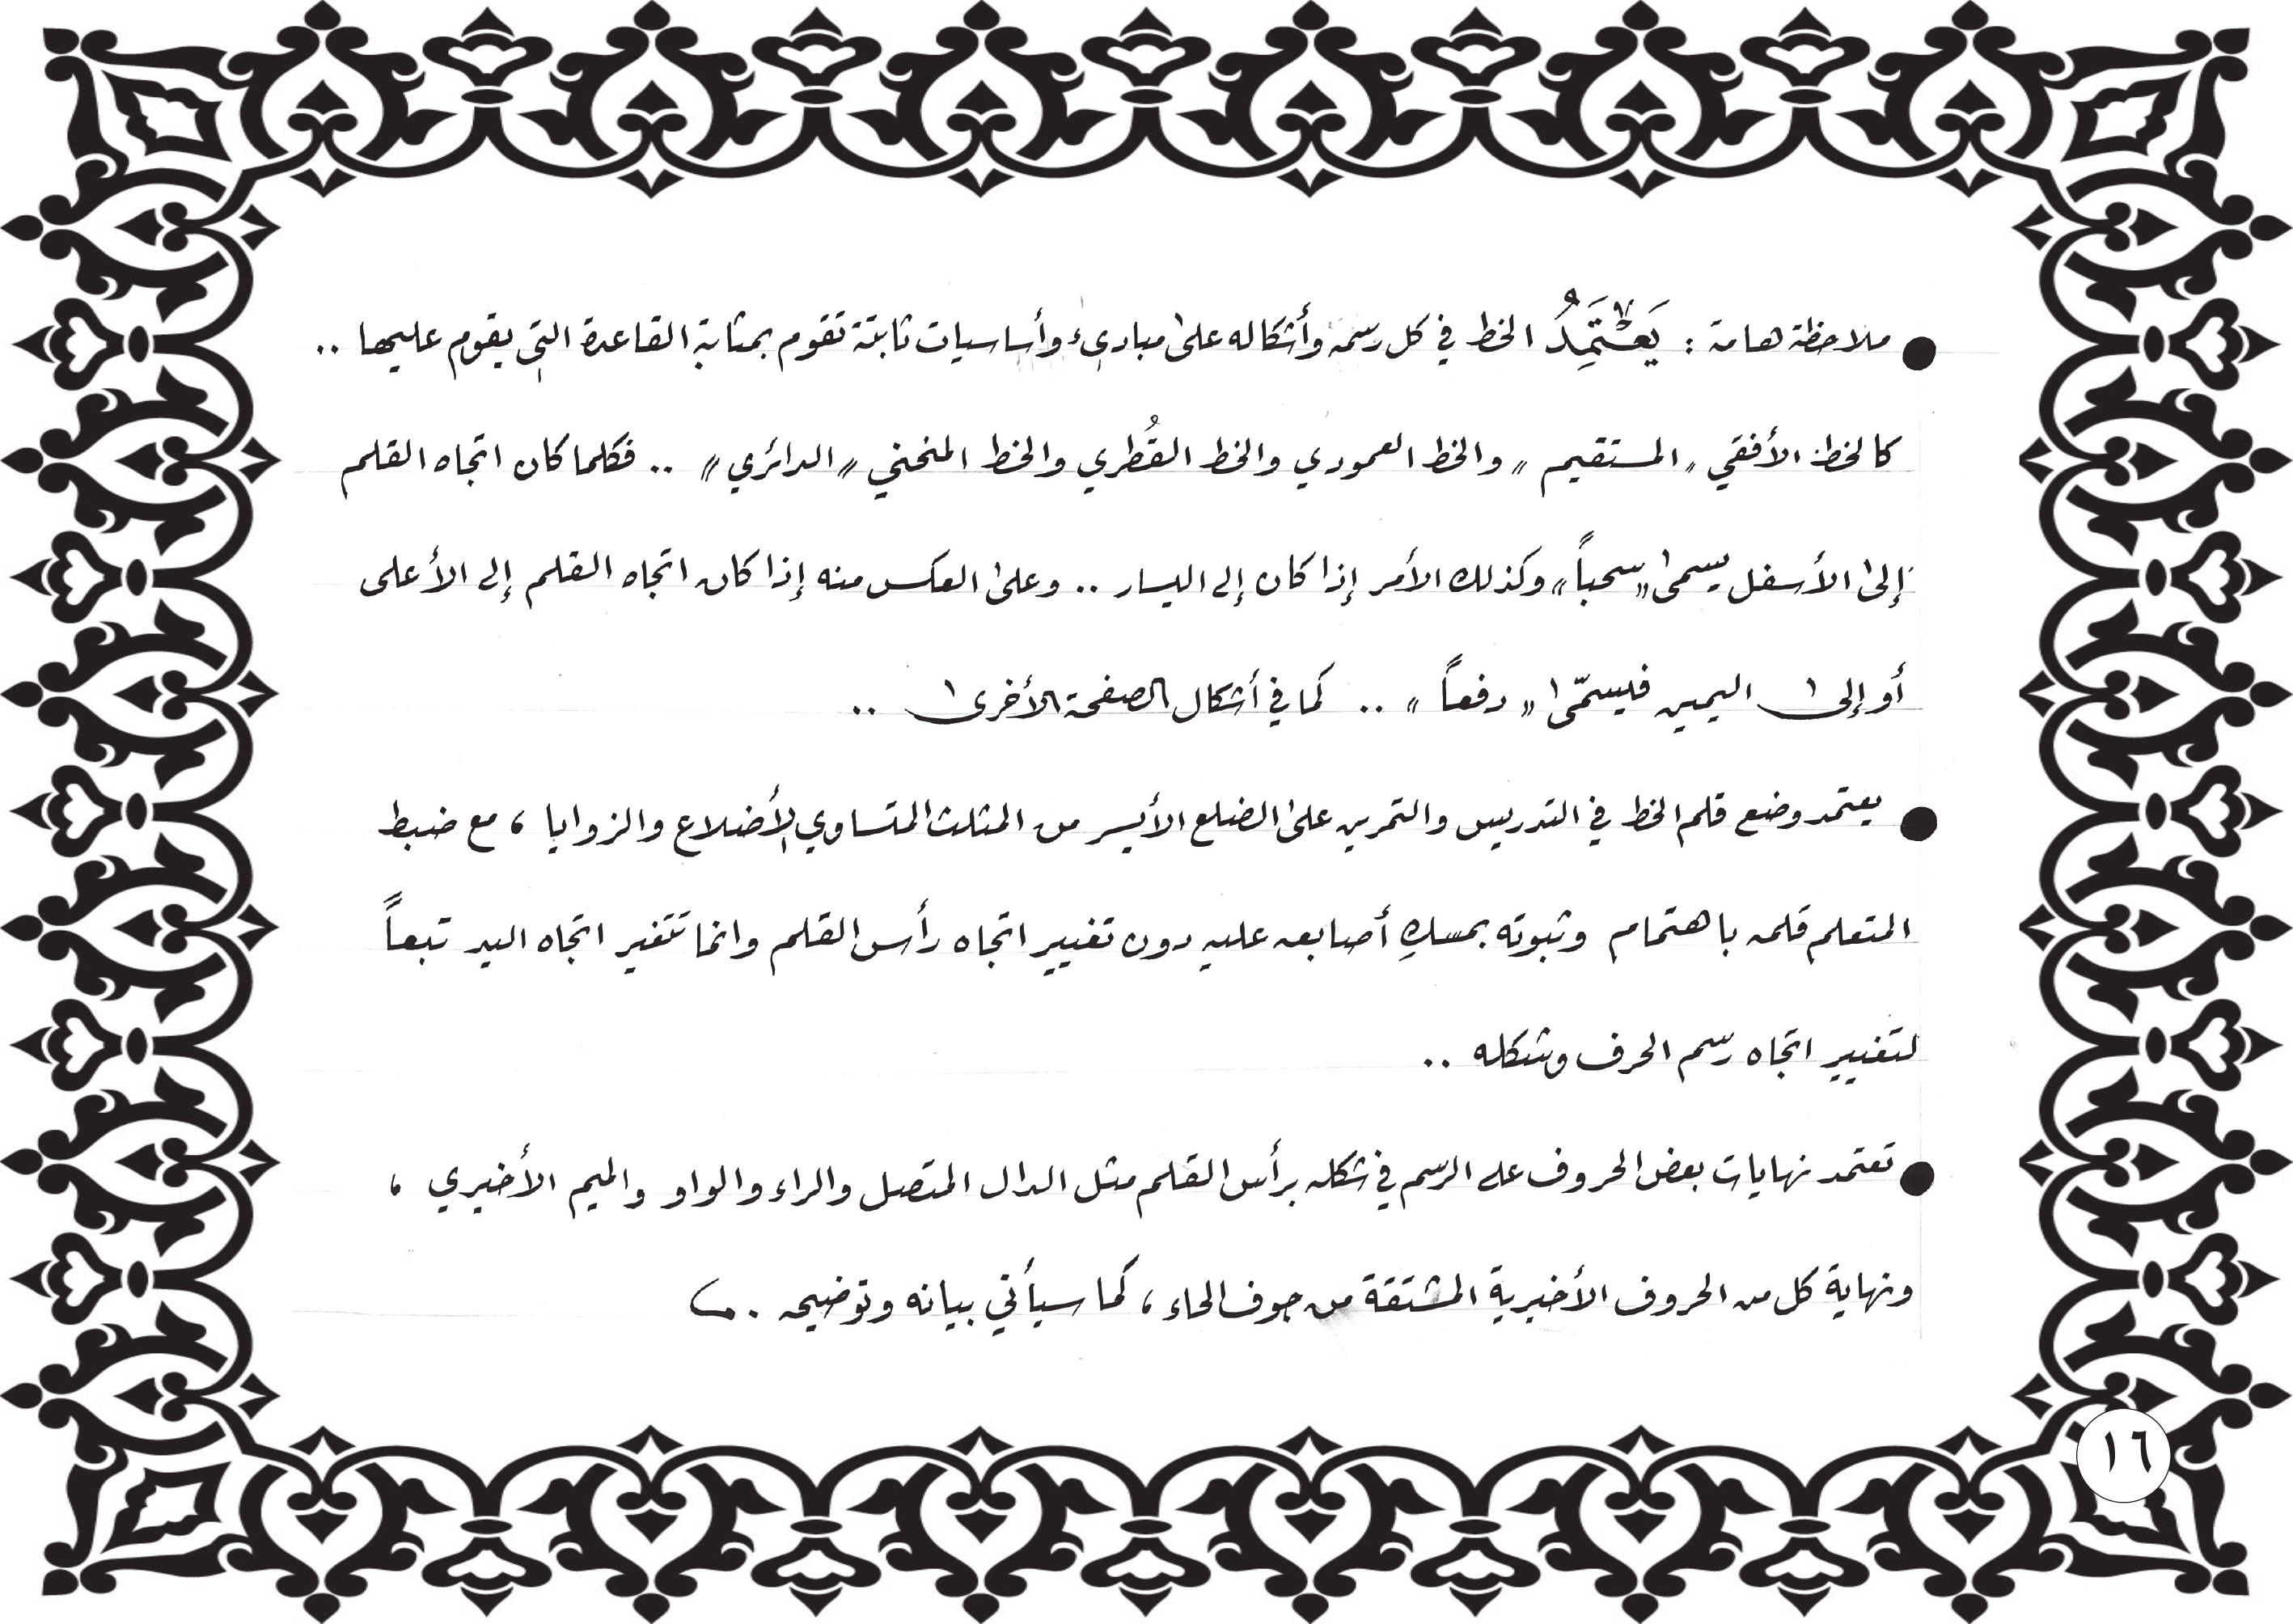 ● ملاحظة هامة : يَعْتَمِدُ الخط في كل رسمه وأشكاله على مبادىء وأساسيات ثابتة تقوم بمثابة القاعدة التي يقوم عليها ..
كالخط الأفقي „ المستقيم „ والخط العمودي والخط القُطري والخط المنحني „ الدائري „ .. فكلما كان اتجاه القلم
إلى الأسفل يسمى „ سحباً „ وكذلك الأمر إذا كان إلى اليسار .. وعلى العكس منه إذا كان اتجاه القلم إلى الأعلى
أو إلى اليمين فيسمّى „ دفعاً „ .. كما في أشكال الصفحة الأخرى ..
● يعتمد وضع قلم الخط في التدريس والتمرين على الضلع الأيسر من المثلث المتساوي الأضلاع والزوايا ، مع ضبط
المتعلم قلمه باهتمام وثبوته بمسك أصابعه عليه دون تغيير اتجاه رأس القلم وانما تتغير اتجاه اليد تبعاً
لتغيير اتجاه رسم الحرف وشكله ..
● تعتمد نهايات بعض الحروف على الرسم في شكله برأس القلم مثل الدال المتصل والراء والواو والميم الأخيري ،
ونهاية كل من الحروف الأخيرية المشتقة من جوف الحاء ، كما سيأتي بيانه وتوضيحه .
١٦